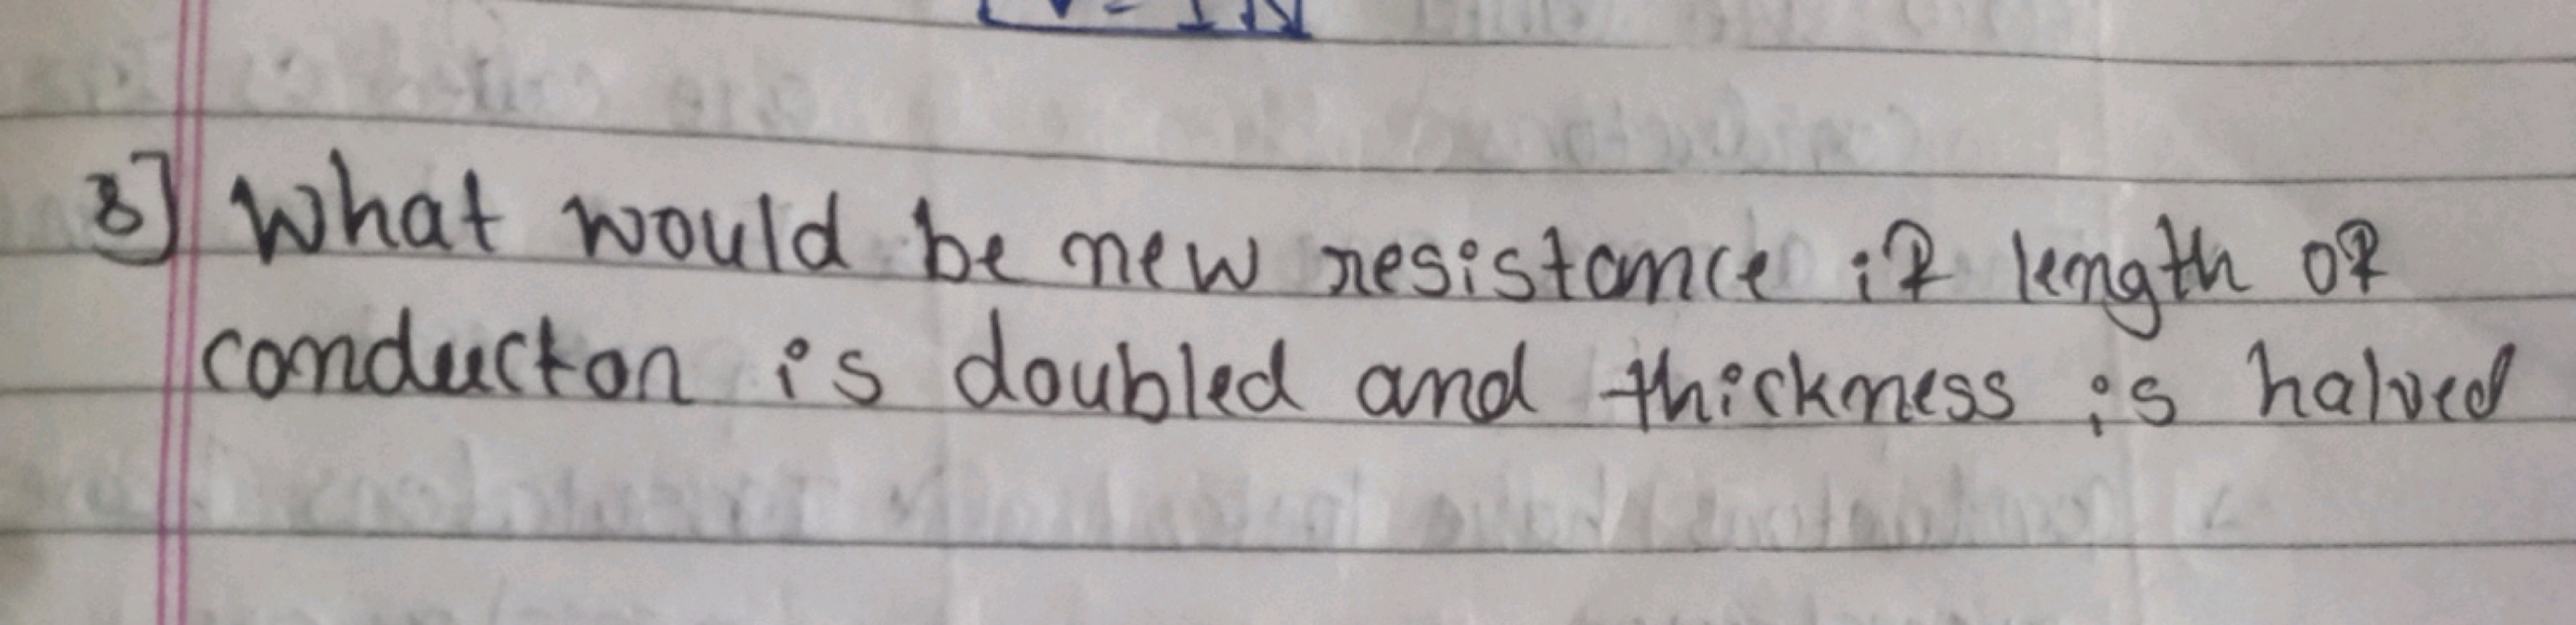 V = IR
3] What would be new resistance if length of
conductor is doubled and thickness is halved